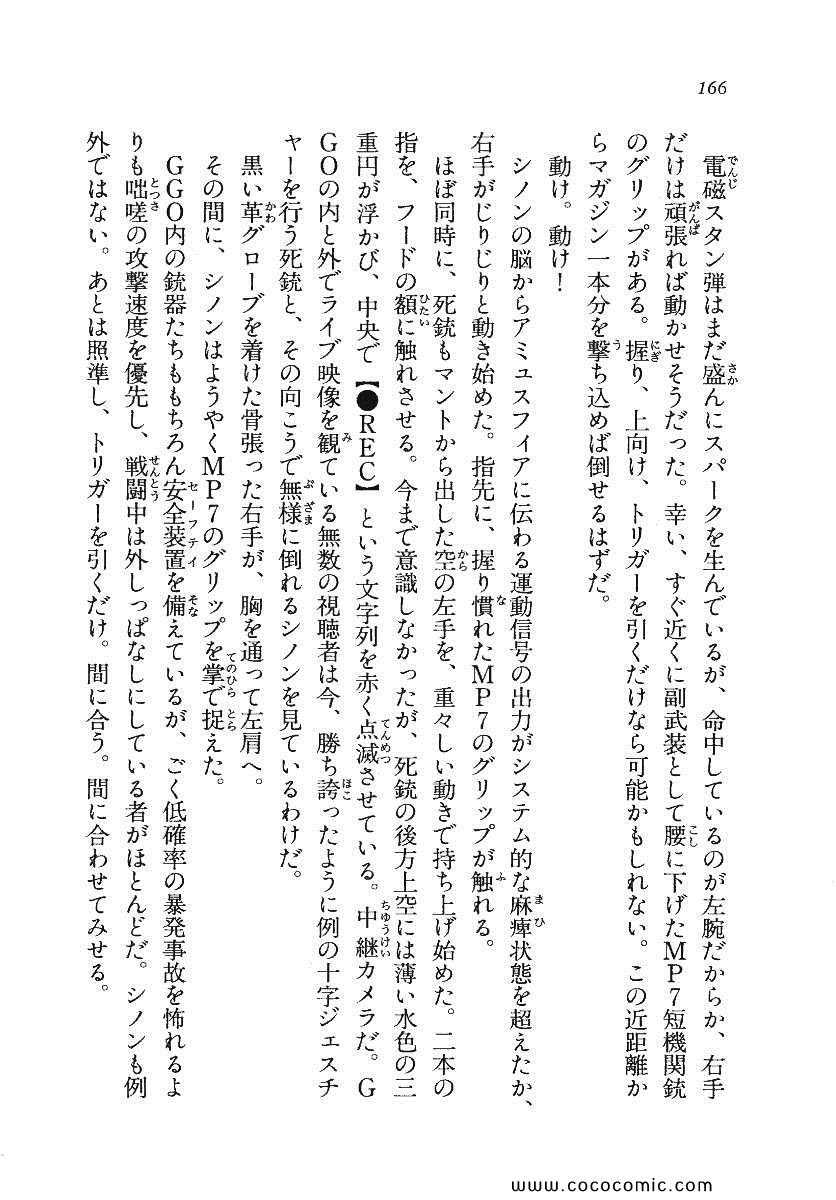 166
電磁スタン弾はまだ盛んにスパークを生んでいるが、命中しているのが左腕だからか、右手
だけは頑張れば動かせそうだった。幸い、すぐ近くに副武装として腰に下げたMP7短機関銃
のグリップがある。握り、上向け、トリガーを引くだけなら可能かもしれない。この近距離か
らマガジン一本分を撃ち込めば倒せるはずだ。
動け。動け！
シノンの脳からアミュスフィアに伝わる運動信号の出力がシステム的な麻痺状態を超えたか、
右手がじりじりと動き始めた。指先に、握り慣れたMP7のグリップが触れる。
ほぼ同時に、死銃もマントから出した空の左手を、重々しい動きで持ち上げ始めた。二本の
指を、フードの額に触れさせる。今まで意識しなかったが、死銃の後方上空には薄い水色の三
重円が浮かび、中央で【●REC】という文字列を赤く点滅させている。中継カメラだ。G
GOの内と外でライブ映像を観ている無数の視聴者は今、勝ち誇ったように例の十字ジェスチ
ャーを行う死銃と、その向こうで無様に倒れるシノンを見ているわけだ。
黒い革グローブを着けた骨張った右手が、胸を通って左肩へ。
その間に、シノンはようやくMP7のグリップを掌で捉えた。
GGO内の銃器たちももちろん安全装置を備えているが、ごく低確率の暴発事故を怖れるよ
りも咄嗟の攻撃速度を優先し、戦闘中は外しっぱなしにしている者がほとんどだ。シノンも例
外ではない。あとは照準し、トリガーを引くだけ。間に合う。間に合わせてみせる。
www.cococomic.com